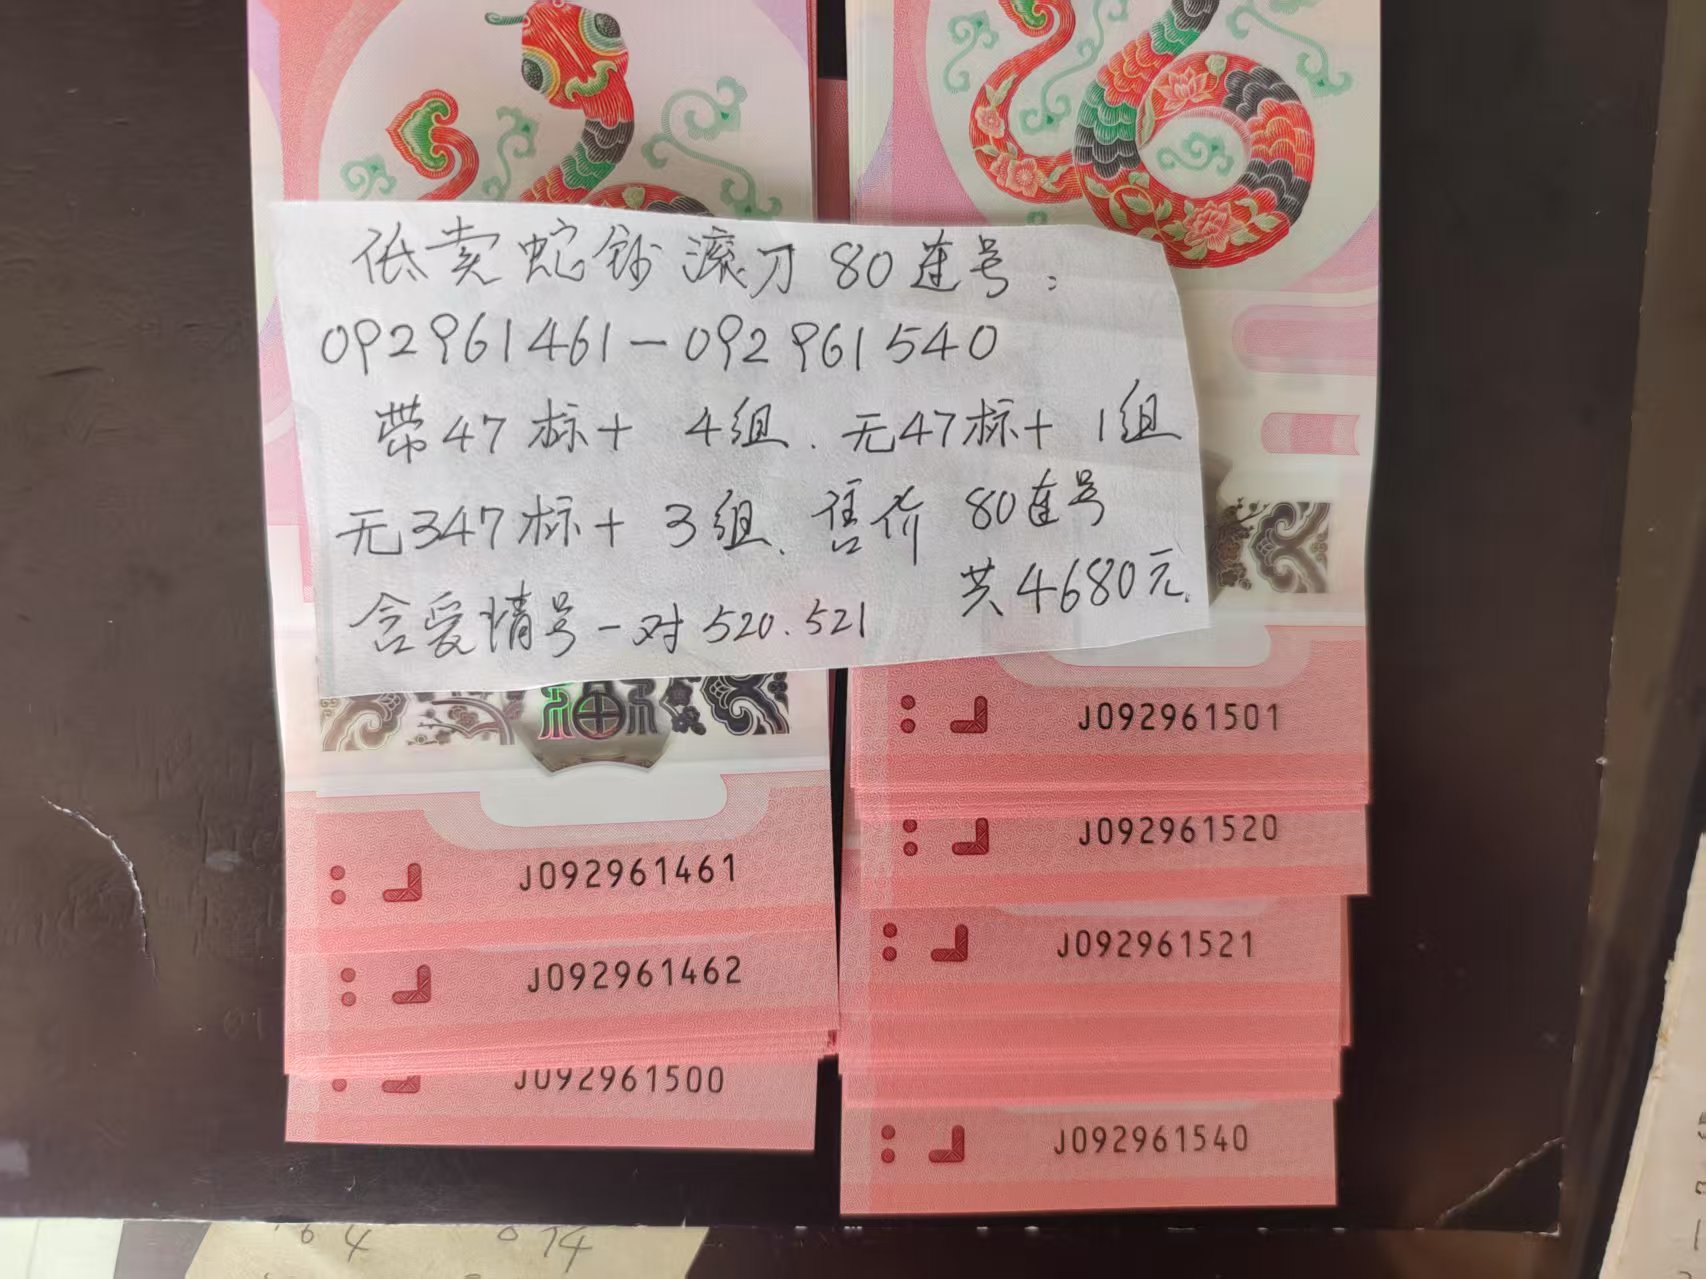 低卖蛇钞滚刀80连号:
092961461—092961540
带47标十 4组、无47标十 1组
无347标十 3组、售价 80连号
共4680元.
含爱情号一对520.521
J092961501
J092961520
J092961461
J092961521
J092961462
J092961500
J092961540
64 074